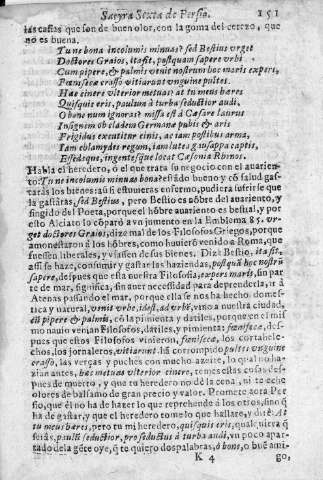 Satyra Sexta de Persio. 151
las castas que son de buen olor, con la goma del cerezo, que
no es buena.
Tu ne bona incolumis minuas? sed Bestius vrget
Doctores Graios, ita fit, postquam sapere vrbi
Cum pipere, & palmis venit nostrum hoc maris expers,
Fœniseca crasso vitiarunt vnguine pultes.
Hæc cinere vlterior metuas? at tu meus hæres
Quisquis eris, paulum à turba seductior audi,
O bone num ignoras? missa est à Cæsare laurus
Insignem ob cladem Germanæ pubis & aris
Frigidus excutitur cinis, ac iam postibus arma,
Iam chlamydes regum, iam lutea gausappa captis,
Essedaque, ingentesque locat Cæsonia Rhenos.
Habla el heredero, o el que trata su negocio con el auarien-
to: Tu ne incolumis minuas bona? estādo bueno y cō salud gas-
tarás los bienes: aū si estuuieras enfermo, pudiera sufrirse que
la gastarás, sed Bestius, pero Bestio es nōbre del auariento, y
fingido del Poeta, porque el hōbre auariento es bestial, y por
esto Alciato le cōparó a vn jumento en la Emblema 85. vr-
get doctores Graios, dize mal de los Filosofos Griegos, porque
amonestaron á los hōbres, como huuierō venido a Roma, que
fuessen liberales, y vsassen de sus bienes. Dize Bestio, ita fit,
assi se haze, consumir y gastar las haziendas, postquā hoc nostrū
sapere, despues que esta nuestra Filosofia, expers maris, sin par
te de mar, significa, sin auer necessidad para deprenderla, ir à
Atenas passando el mar, porque ella se nos ha hecho domes-
tica y natural, venit vrbe, idest, ad vrbē, vino a nuestra ciudad,
cū pipere & palmis, cō la pimienta y datiles, porque en el mis
mo nauio venian Filosofos, datiles, y pimienta: fœnisecæ, des-
pues que estos Filosofos vinieron, fœnisecæ, los cortahele-
chos, los jornaleros, vitiarunt, hā corrompido pultes vnguine
crasso, las verças y puches con mucho azeite, lo qual no ha-
zian antes, hæc metuas vlterior cinere, temes estas cosas des-
pues de muerto, y que tu heredero no dè la cena, ni te eche
olores de balsamo de gran precio y valor. Promete aora Per-
sio, que èl no ha de hazer lo que reprehende à los otros, sino q̄
ha de gastar, y que el heredero tome lo que hallare, y dize, At
tu meus hæres, pero tu mi heredero, quisquis eris, qualquiera q̄
seràs, paulū seductior, pro seductus à turba audi, vn poco apar-
tado de la gēte oye, q̄ te quiero dos palabras, ó bone, o buē ami-
K 4 go,